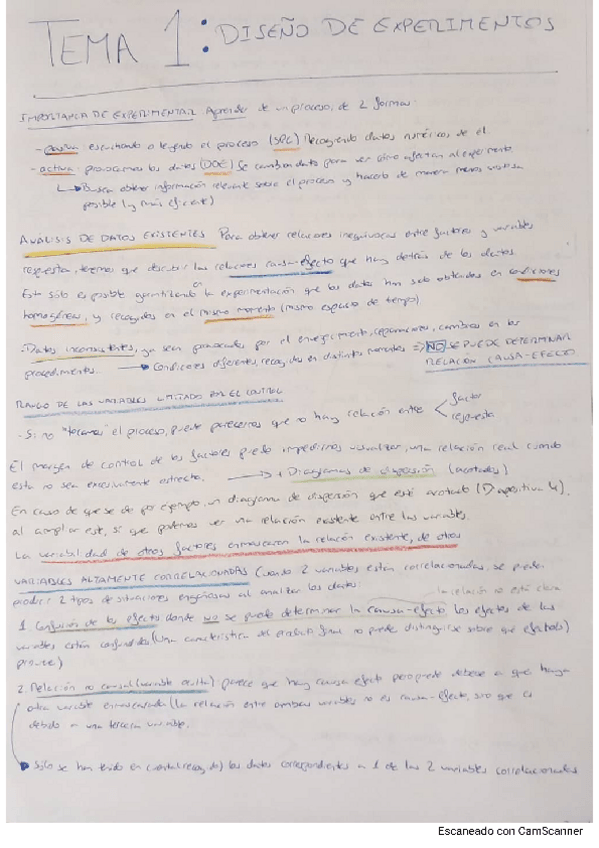 TEMA 1: DISEÑO DE EXPERIMENTOS
IMPORTANCIA DE EXPERIMENTAR Aprender de un proceso, de 2 formas
- pasiva escuchando o leyendo el proceso (SPC) Recogiendo datos numéricos de el
- activa: provocamos los datos (DOE) Se cambian datos para ver cómo afectan al experimento
↳ Buscan obtener información relevante sobre el proceso y hacerlo de manera menos costosa
posible (y más eficiente)
ANÁLISIS DE DATOS EXISTENTES Para obtener relaciones inequívocas entre factores y variables
respuesta, tenemos que descubrir las relaciones causa-efecto que hay detrás de los datos
Esto sólo es posible garantizando en la experimentación que los datos han sido obtenidos en condiciones
homogéneas, y recogidos en el mismo momento (mismo espacio de tiempo)
- Datos inconsistentes, ya sean provocados por el envejecimiento, reparaciones, cambios en los
procedimientos. → Condiciones diferentes, recogidos en distintos momentos ⇒ NO SE PUEDE DETERMINAR
RELACIÓN CAUSA-EFECTO
RANGO DE LAS VARIABLES LIMITADO POR EL CONTROL
- Si no "tocamos" el proceso, puede parecernos que no hay relación entre < factor
respuesta
El margen de control de los factores puede impedirnos visualizar, una relación real cuando
esta no sea excesivamente estrecha. → + Diagramas de dispersión (acotados)
En caso de que se dé por ejemplo, un diagrama de dispersión que está acotado (Diapositiva 4),
al ampliar este, sí que podemos ver una relación existente entre las variables.
La variabilidad de otros factores enmascaran la relación existente, de otros
VARIABLES ALTAMENTE CORRELACIONADAS Cuando 2 variables están correlacionadas, se puede
producir 2 tipos de situaciones engañosas al analizar los datos:
la relación no está clara
1. Confusión de los efectos donde NO se puede determinar la causa-efecto los efectos de las
variables están confundidos (Una característica del producto final no puede distinguirse sobre que efecto los
provoca)
2. Relación no causal (variable oculta) parece que hay causa efecto pero puede deberse a que haya
otra variable enmascarada (la relación entre ambas variables no es causa-efecto, sino que es
debido a una tercera variable.
→ Sólo se han tenido en cuenta (recogido) los datos correspondientes a 1 de las 2 variables correlacionadas
Escaneado con CamScanner